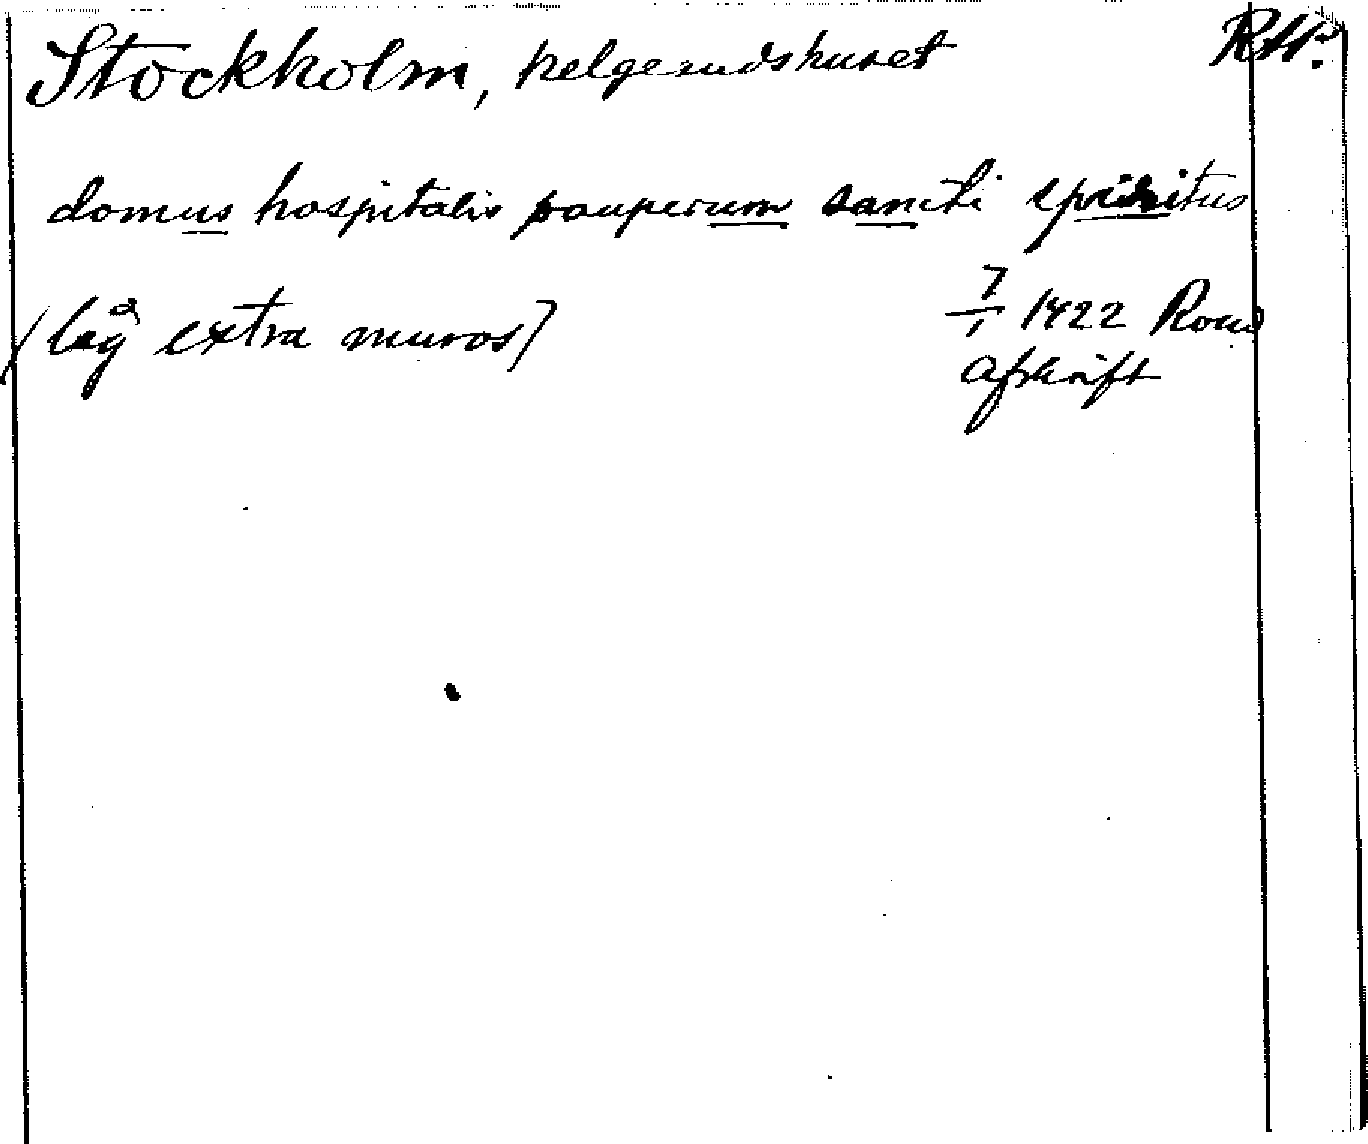 Stockholm, helgeandshuset RAP.
domus hospitalis pauperum sancti spiritus
(låg extra muros) 7/1 1422 Rom
afskrift